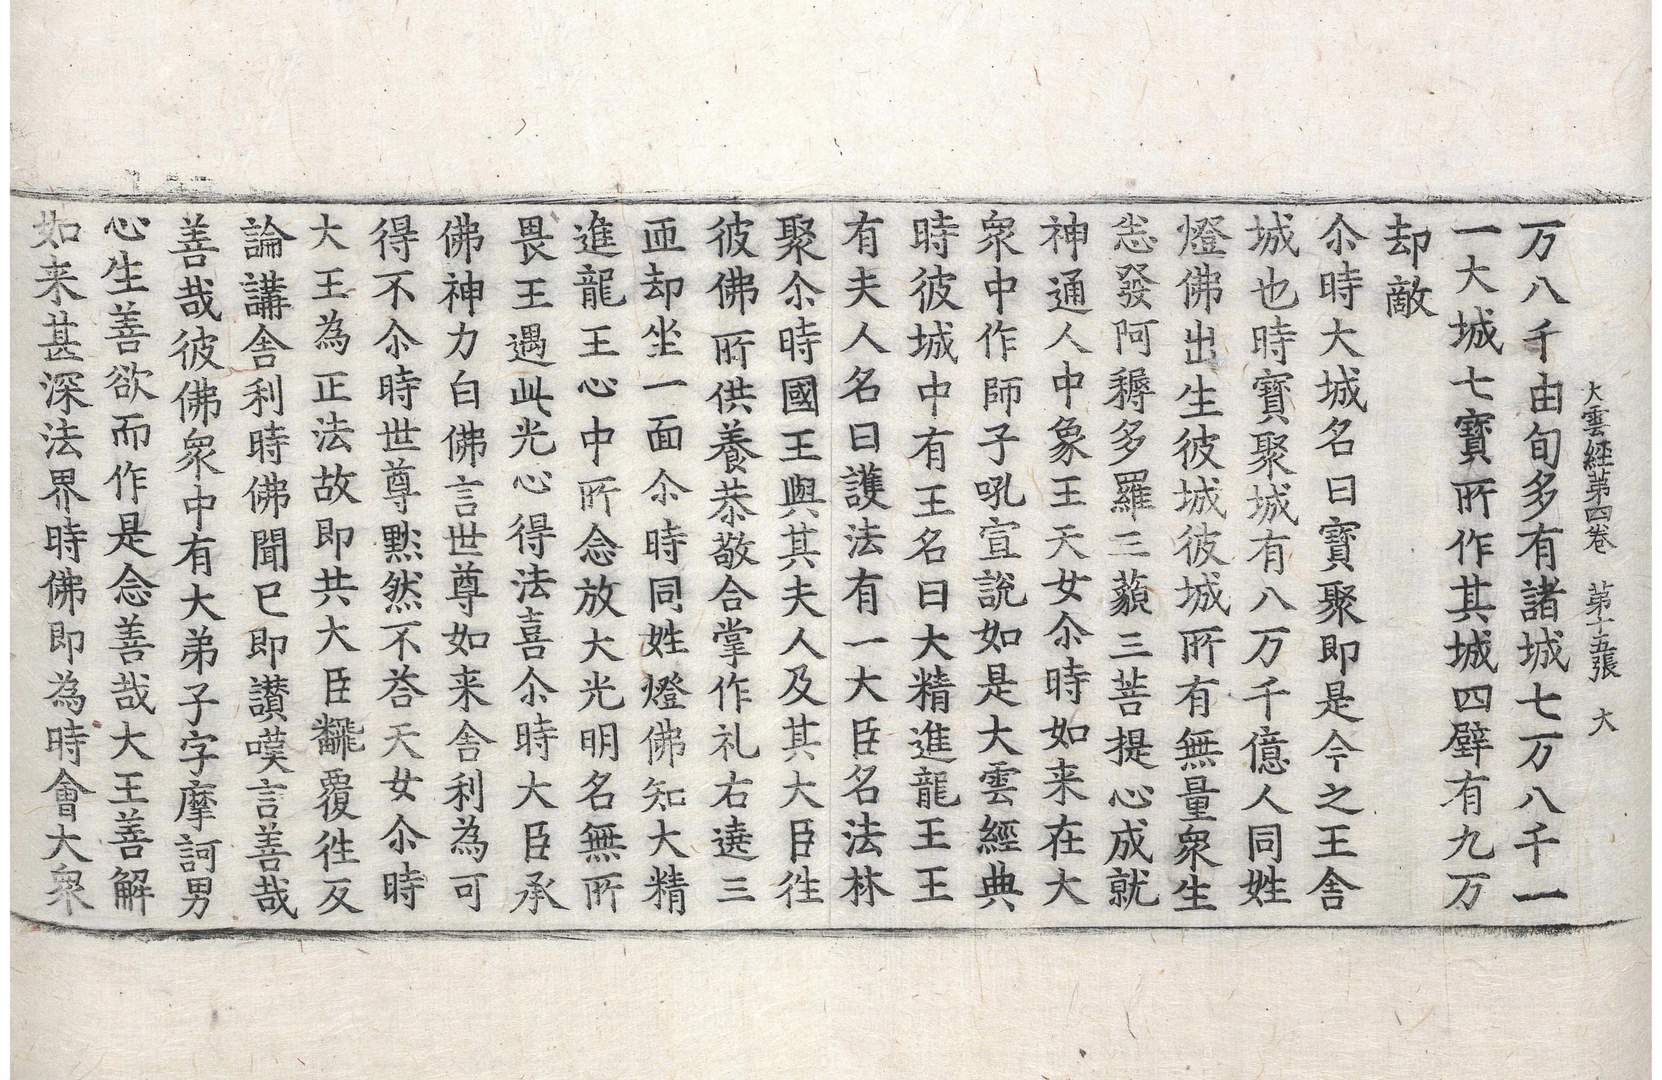 大雲經第四卷 第十五張 大
万八千由旬多有諸城七万八千一
一大城七寶所作其城四壁有九万
却敵
尒時大城名曰寶聚即是今之王舍
城也時寶聚城有八万千億人同姓
燈佛出生彼城彼城所有無量衆生
㤀發阿耨多羅三藐三菩提心成就
神通人中象王天女尒時如来在大
衆中作師子吼宣說如是大雲經典
時彼城中有王名曰大精進龍王王
有夫人名曰護法有一大臣名法林
聚尒時國王與其夫人及其大臣徃
彼佛所供養恭敬合掌作礼右遶三
帀却坐一面尒時同姓燈佛知大精
進龍王心中所念放大光明名無所
畏王遇此光心得法喜尒時大臣承
佛神力白佛言世尊如来舍利為可
得不尒時世尊黙然不荅天女尒時
大王為正法故即共大臣飜覆徃反
論講舍利時佛聞已即讃嘆言善哉
善哉彼佛衆中有大弟子字摩訶男
心生善欲而作是念善哉大王善解
如来甚深法界時佛即為時會大衆